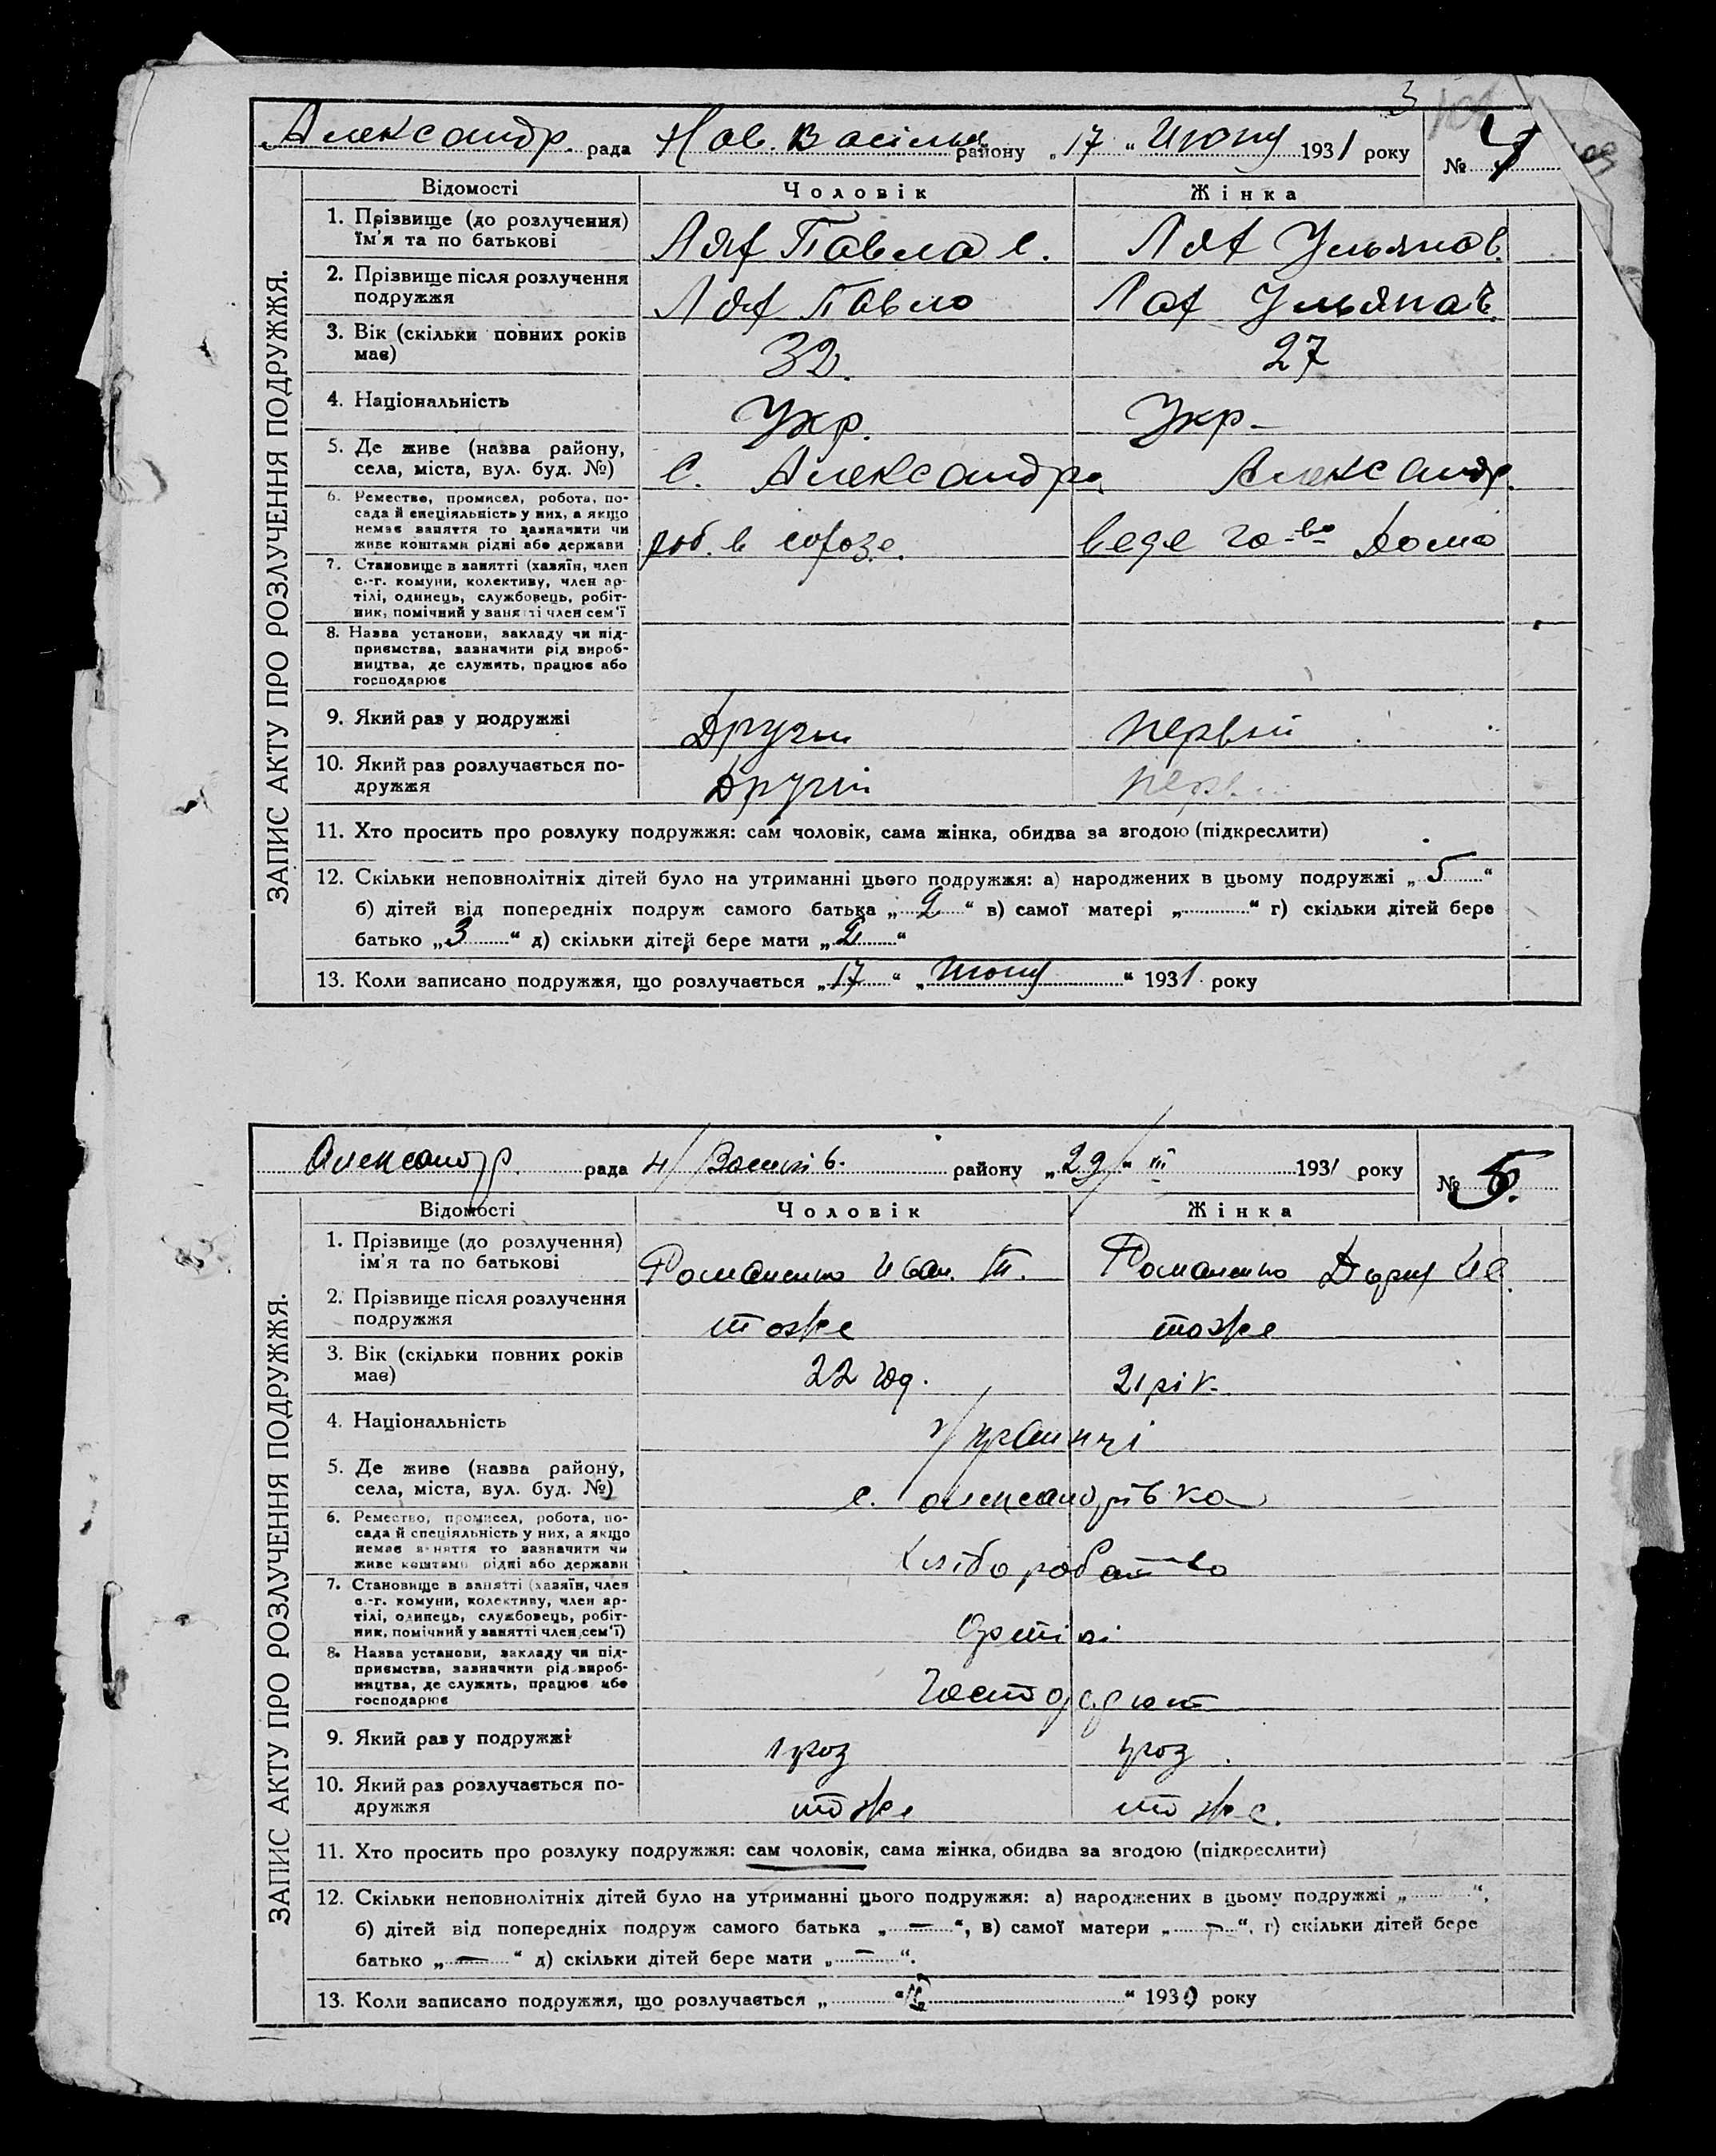 3
Александр. рада Нов. Василь району „17“ Июну 1931 року
№ 4
ЗАПИС АКТУ ПРО РОЗЛУЧЕННЯ ПОДРУЖЖЯ.
Відомості Чоловік Жінка
1. Прізвище (до розлучення) їм'я та по батькові Лях Павла С. Лях Ульянов.
2. Прізвище після розлучення подружжя Лях Павло Лях Ульянов.
3. Вік (скільки повних років має) 32. 27
4. Національність Укр. Укр-
5. Де живе (назва району, села, міста, вул. буд. №) С. Александр. Александр.
6. Ремество, промисел, робота, по-
сада й спеціяльність у них, а якщо
немає заняття то зазначити чи
живе коштами рідні або держави роб. в веде го-во Дома
7. Становище в занятті (хазяїн, член
с.-г. комуни, колективу, член ар-
тілі, одинець, службовець, робіт-
ник, помічний у занятті член сем'ї
8. Назва установи, закладу чи під-
приємства, зазначити рід вироб-
ництва, де служить, працює або
господарює
9. Який раз у подружжі Други первый
10. Який раз розлучається по-
дружжя Другій перв
11. Хто просить про розлуку подружжя: сам чоловік, сама жінка, обидва за згодою (підкреслити)
12. Скільки неповнолітніх дітей було на утриманні цього подружжя: а) народжених в цьому подружжі „5“
б) дітей від попередніх подруж самого батька „2“ в) самої матері „ “ г) скільки дітей бере
батько „3“ д) скільки дітей бере мати „2“
13. Коли записано подружжя, що розлучається „17“ „Июну“ 1931 року
Олександр. рада Н/Василів. району „29“ III 1931 року
№ 5.
ЗАПИС АКТУ ПРО РОЗЛУЧЕННЯ ПОДРУЖЖЯ.
Відомості Чоловік Жінка
1. Прізвище (до розлучення)
ім'я та по батькові Романенко Иван. Т. Романенко Ив.
2. Прізвище після розлучення
подружжя тоже тоже
3. Вік (скільки повних років
має) 22 год. 21 рік.
4. Національність Українці
5. Де живе (назва району,
села, міста, вул. буд. №) с. Олександрівка
6. Ремество, промисел, робота, по-
сада й спеціяльність у них, а якщо
немає заняття то зазначити чи
живе коштами рідні або держави хліборобство
7. Становище в занятті (хазяїн, член
с.-г. комуни, колективу, член ар-
тілі, одинець, службовець, робіт-
ник, помічний у занятті член сем'ї) Артілі
8. Назва установи, закладу чи під-
приємства, зазначити рід вироб-
ництва, де служить, працює або
господарює
9. Який раз у подружжі 1 раз 1 раз
10. Який раз розлучається по-
дружжя тоже тоже.
11. Хто просить про розлуку подружжя: сам чоловік, сама жінка, обидва за згодою (підкреслити)
12. Скільки неповнолітніх дітей було на утриманні цього подружжя: а) народжених в цьому подружжі „ “,
б) дітей від попередніх подруж самого батька „—“, в) самої матери „—“. г) скільки дітей бере
батько „—“ д) скільки дітей бере мати „—“.
13. Коли записано подружжя, що розлучається „ “ “ 1930 року